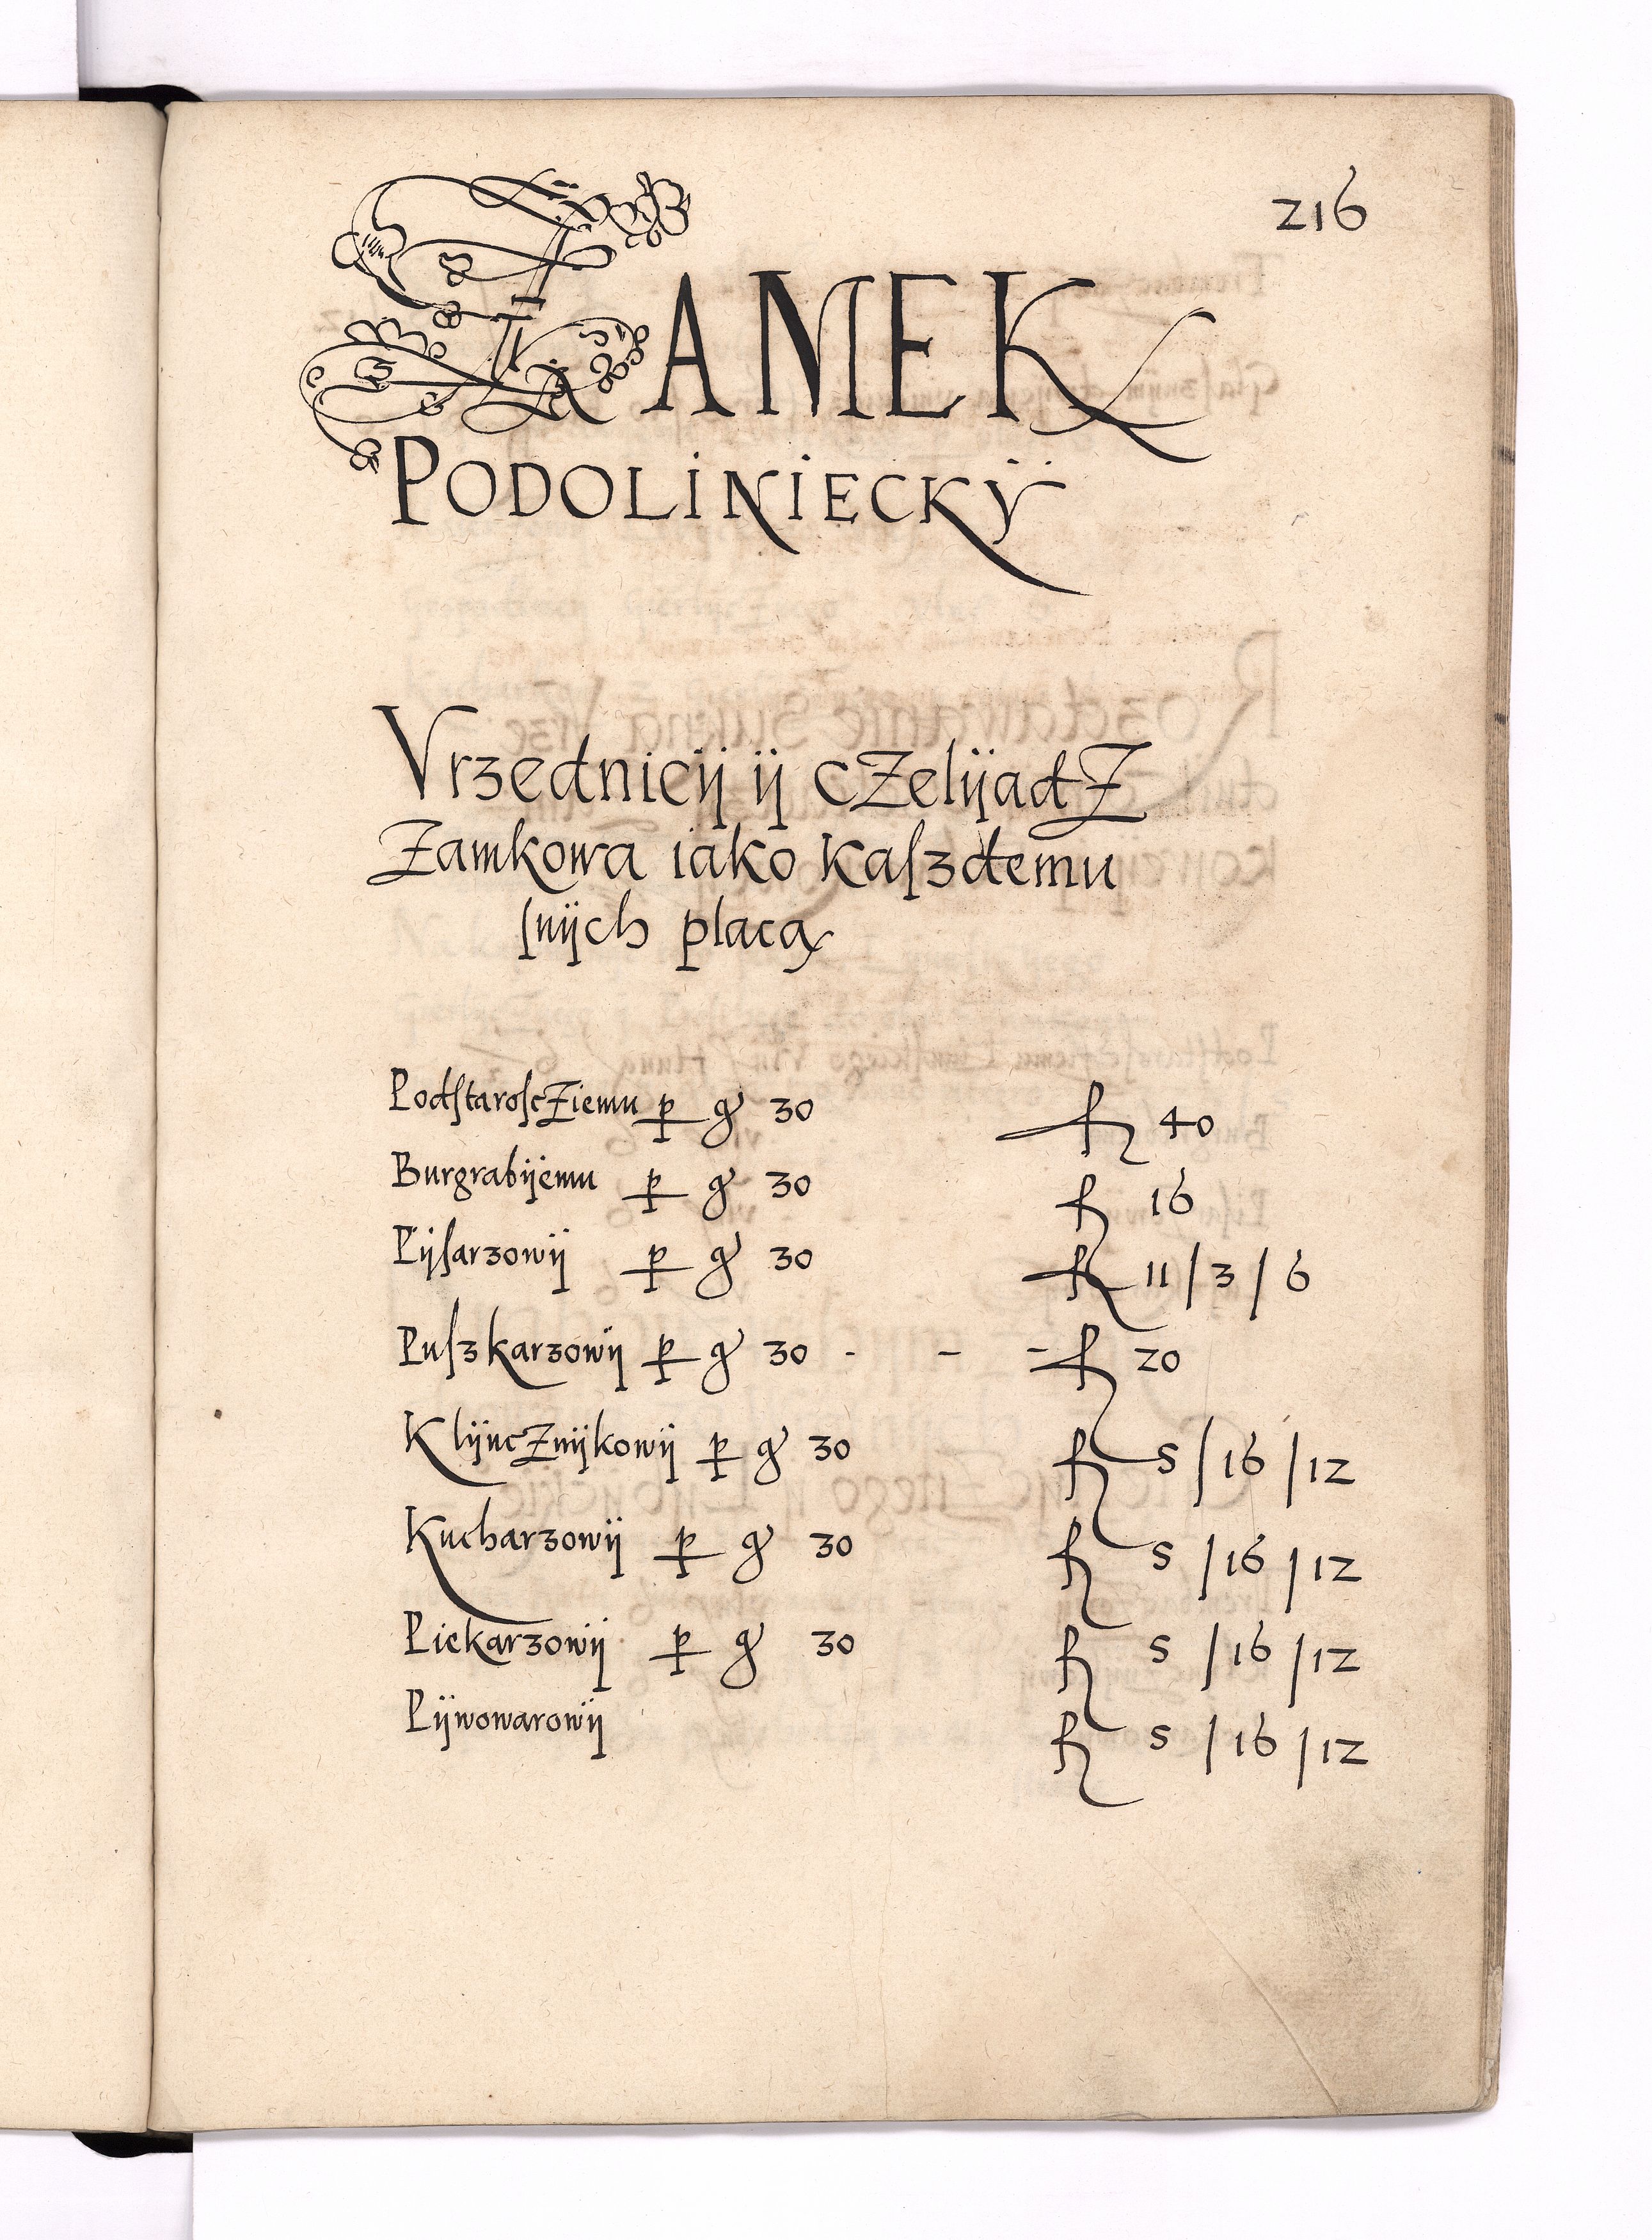 216
ZAMEK
PODOLINIECKÿ
Vrzednicÿ ÿ cZelÿadZ
Zamkowa iako kaſzdemu
ſnÿch placą
PodſtaroſcZiemu p g 30 f 40
Burgrabÿemu p g 30 f 16
Pÿſarzowÿ p g 30 f 11 / 3 / 6
Puſzkarzowÿ p g 30 - - - f 20
KlÿucZnÿkowÿ p g 30 f 5 / 16 / 12
Kucharzowÿ p g 30 f 5 / 16 / 12
Piekarzowÿ p g 30 f 5 / 16 / 12
Pÿwowarowÿ f 5 / 16 / 12